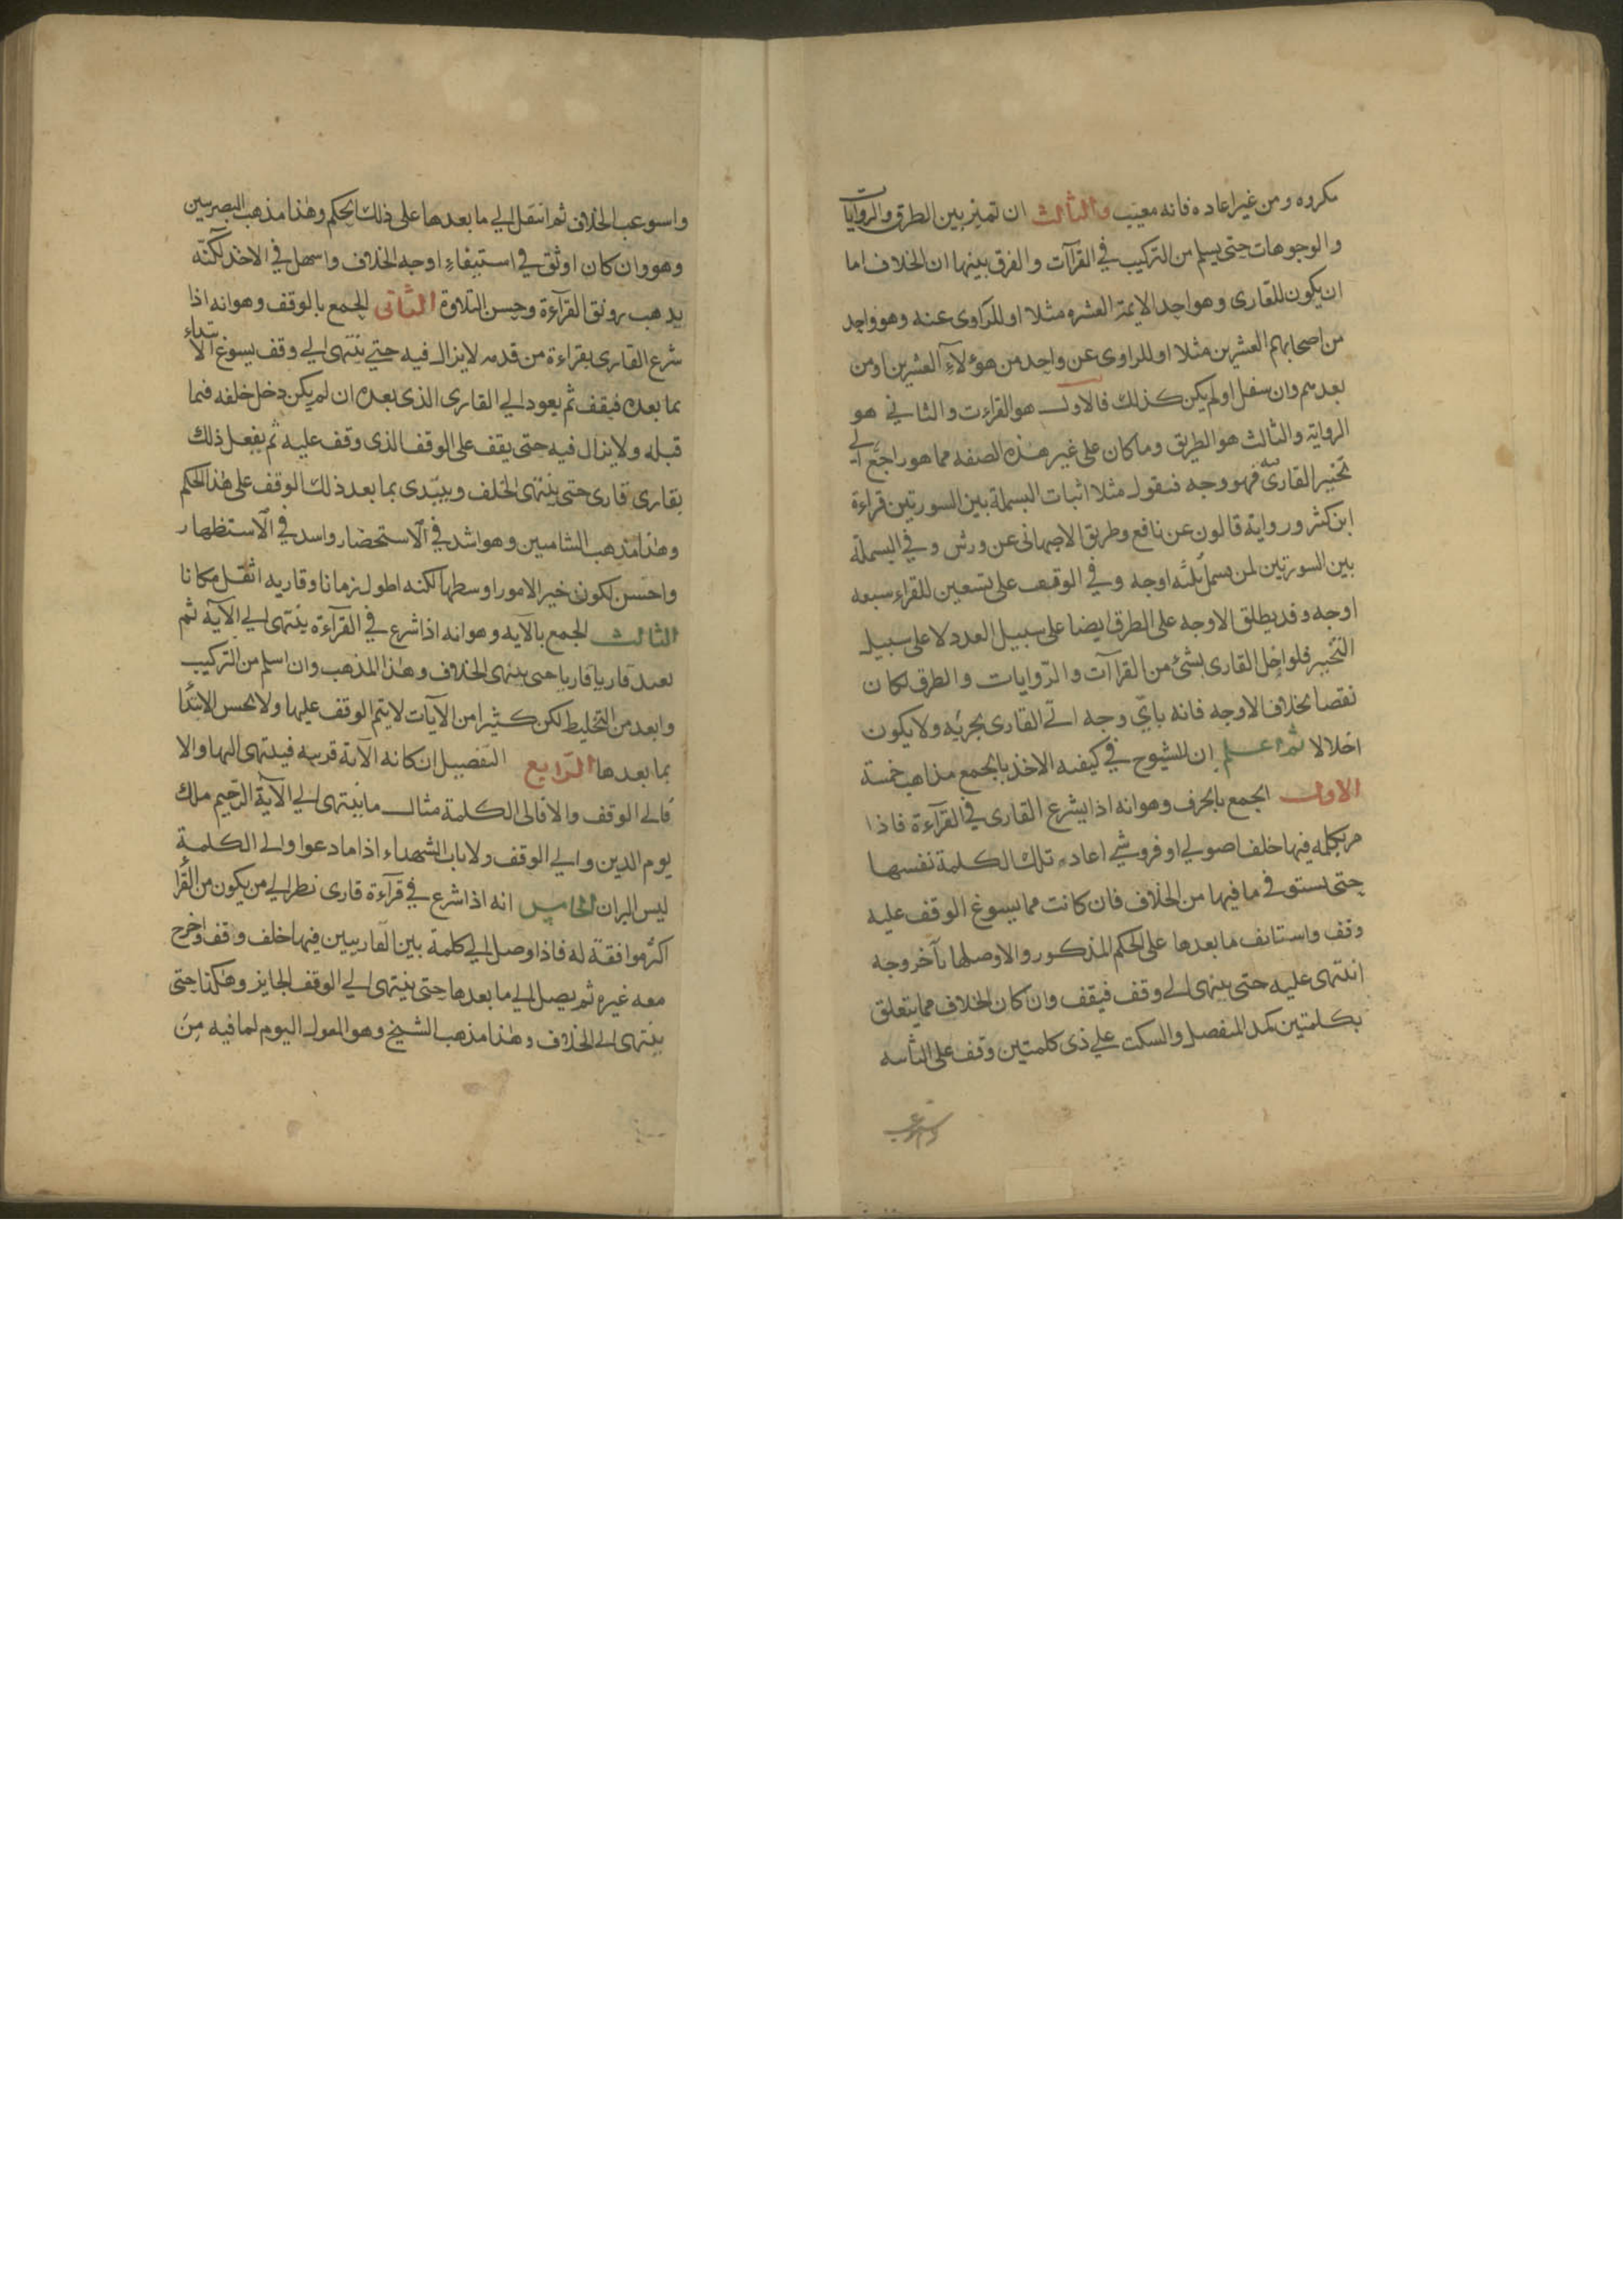 مكروه ومن غير اعاده فانه معيب والثالث ان تميز بين الطرق والروايات
والوجوهات حتى يسلم من التركيب في القرآت والفرق بينها ان الخلاف اما
ان يكون للقارى وهو احد الايمة العشره مثلا او للراوى عنه وهو واحد
من اصحابهم العشرين مثلا او للراوى عن واحد من هؤلاء العشرين او من
بعدهم وان سفل او لم يكن كذلك فالاول هو القراءت والثاني هو
الرواية والثالث هو الطريق وما كان على غير هذه الصفه مما هو راجع الى
تخيير القارى فهو وجه فنقول مثلا اثبات البسملة بين السورتين قراءة
ابن كثر ورواية قالون عن نافع وطريق الاصبهانى عن ورش وفي البسملة
بين السورتين لمن بسمل ثلثه اوجه وفي الوقف على نستعين للقراء سبعه
اوجه وقد يطلق الاوجه على الطرق ايضا على سبيل العدد لا على سبيل
التخيير فلو اخل القارى بشئ من القراآت والروايات والطرق لكان
نقصا بخلاف الاوجه فانه باي وجه اتى القارى يجزيه ولا يكون
اخلالا ثم اعلم ان للشيوح في كيفيه الاخذ بالجمع مذاهب خمسة
الاول الجمع بالحرف وهو انه اذا يشرع القارى في القرآءة فاذا
مر بكلمه فيها خلف اصولي او فروشي اعاد تلك الكلمة نفسها
حتى يستوفي ما فيها من الخلاف فان كانت مما يسوغ الوقف عليه
وقف واستانف ما بعدها على الحكم المذكور والا وصلها بآخر وجه
انتهى عليه حتى ينتهى الى وقف فيقف وان كان الخلاف مما يتعلق
بكلمتين كمد المنفصل والسكت على ذى كلمتين وقف على الثانيه
واسوعب
واسوعب الخلاف ثم انتقل الي ما بعدها على ذلك الحكم وهذا مذهب البصريين
وهو وان كان اوثق في استيفاء اوجه الخلاف واسهل في الاخذ لكنه
يذهب رونق القرآءة وحسن التلاوة الثانى الجمع بالوقف وهو انه اذا
شرع القارى بقراءة من قدمه لا يزال فيه حتي ينتهى الي وقف يسوغ الابتداء
بما بعده فيقف ثم يعود الي القارى الذى بعده ان لم يكن دخل خلفه فيما
قبله ولا يزال فيه حتى يقف على الوقف الذى وقف عليه ثم يفعل ذلك
بقارى قارى حتى ينتهى الخلف ويبتدى بما بعد ذلك الوقف على هذا الحكم
وهذا مذهب الشاميين وهو اشد في الاستحضار واسد في الاستظهار
واحسن لكون خير الامور اوسطها لكنه اطول زمانا وقاريه اثقل مكانا
الثالث الجمع بالآيه وهو انه اذا شرع في القرآءة ينتهى الي الآية ثم
يعيد قاريا قاريا حتى ينتهى الخلاف وهذا المذهب وان اسلم من التركيب
وابعد من التخليط لكن كثيرا من الآيات لا يتم الوقف عليها ولا يحسن الابتدا
بما بعدها الرابع التفصيل ان كانه الآية قريبه فينتهى اليها والا
فالى الوقف والا فالى الكلمة مثال ما ينتهى الي الآية الرحيم ملك
يوم الدين والي الوقف ولا ياب الشهداء اذا ما دعوا والى الكلمة
ليس البر ان الخامس انه اذا شرع في قرآءة قارى نظر الي من يكون من القرا
اكثر موافقة له فاذا وصل الي كلمة بين القاريين فيها خلف وقف واخرج
معه غيره ثم يصل الي ما بعدها حتى ينتهى الي الوقف الجايز وهكذا حتى
ينتهى الى الخلاف وهذا مذهب الشيخ وهو المعول اليوم لما فيه من